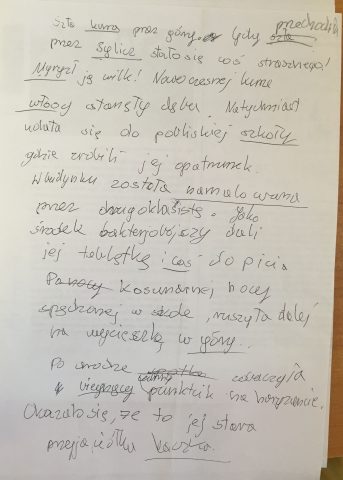 Szła kura przez góry. Gdy szła przechodziła
przez Sylice stało się coś strasznego!
Ugryzł ją wilk! Nowoczesnej kurze
włosy stanęły dęba. Natychmiast
udała się do pobliskiej szkoły
gdzie zrobili jej opatrunek.
W budynku została namalowana
przez drugoklasistę. Jako
środek bakteriobójczy dali
jej tabletkę i coś do picia.
Po nocy koszmarnej nocy
spędzonej w szkole, ruszyła dalej
na wycieczkę w góry.
Po drodze zobaczyła
punktcik na horyzoncie.
Okazało się, że to jej stara
przyjaciółka kaczka.